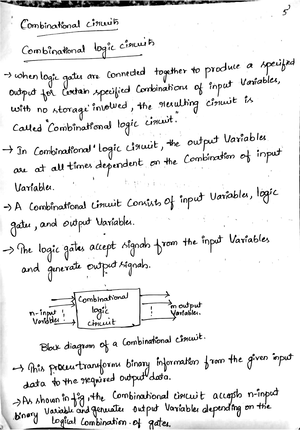 5
Combinational circuits
Combinational logic circuits
→ when logic gates are connected together to produce a specified
output for certain specified combinations of input variables,
with no storage involved, the resulting circuit is
called "combinational logic circuit.
→ In Combinational logic circuit, the output variables
are at all times dependent on the combination of input
variables.
→ A combinational circuit consists of input variables, logic
gates, and output variables.
→ The logic gates accept signals from the input variables
and generate output signals.
n-input
variables
Combinational
logic
circuit
m output
variables.
Block diagram of a combinational circuit.
→ This process transforms binary information from the given input
data to the required output data.
→ As shown in fig, the combinational circuit accepts n-input
binary variable and generates output variables depending on the
logical combination of gates.